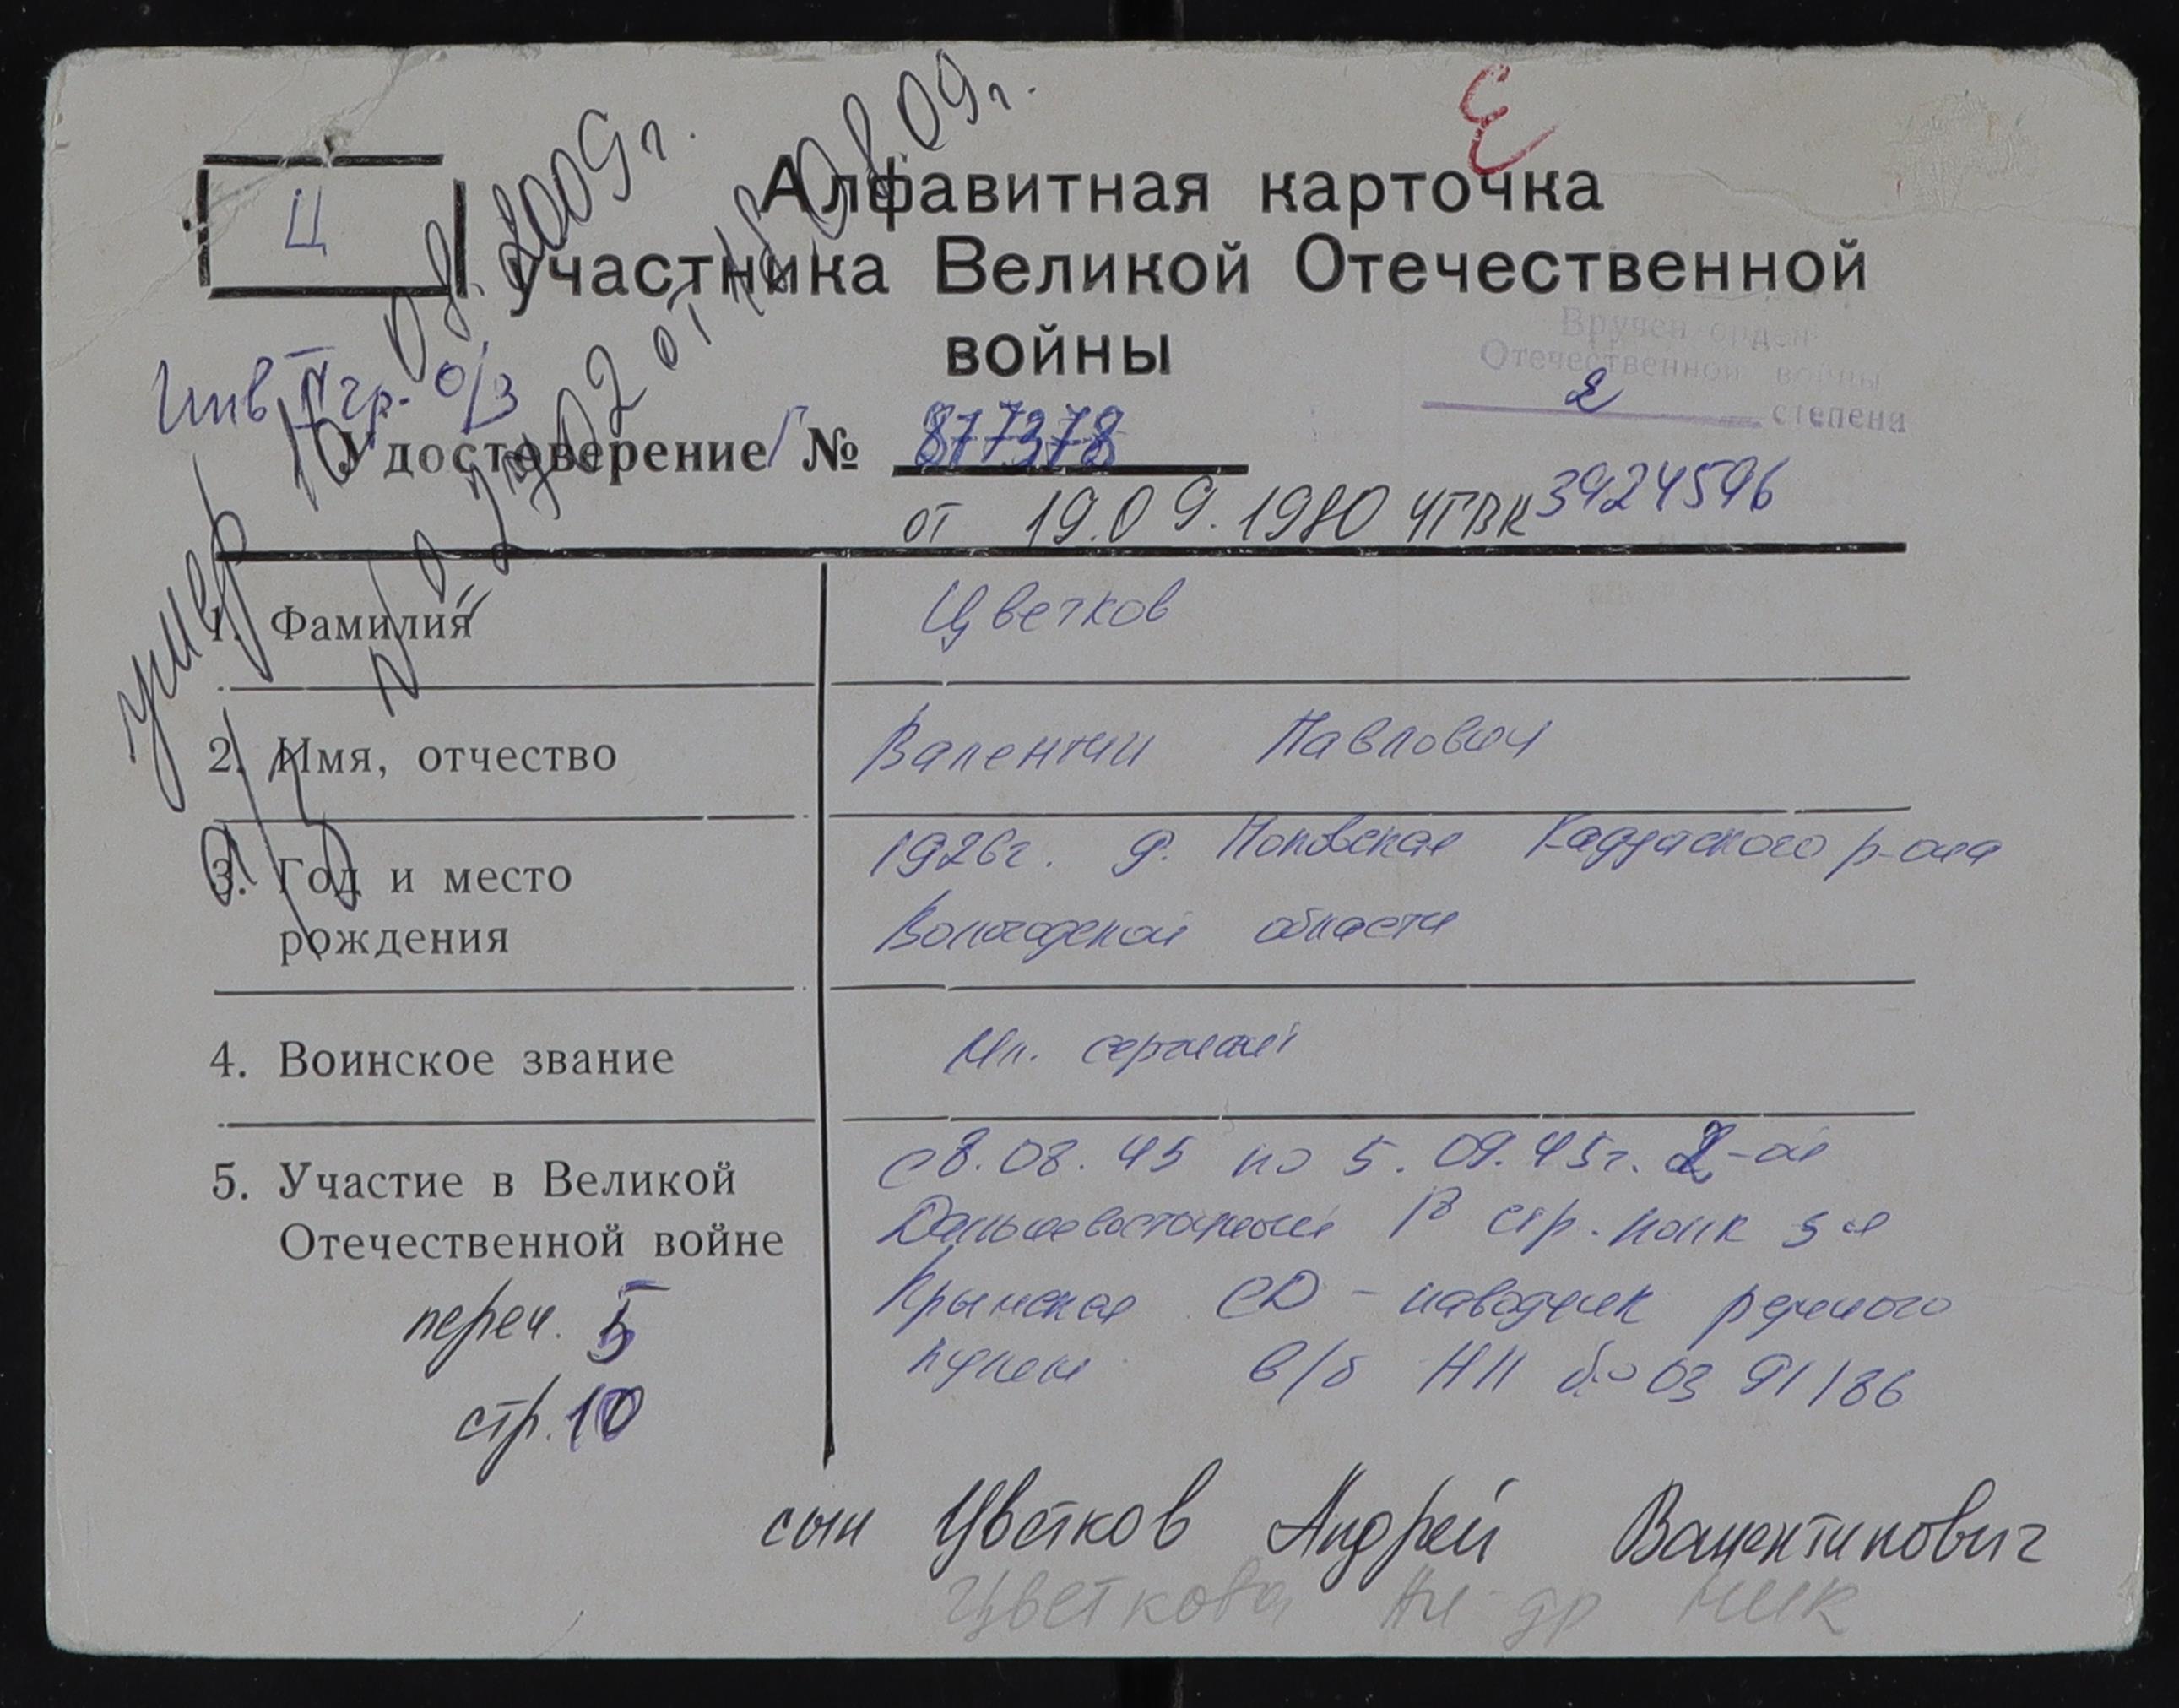 Ц
Алфавитная карточка
участника Великой Отечественной
войны
Вручен орден
Отечественной войны
2 степени
3924596
Инв II гр. о/з
Удостоверение Г № 877378
от 19.09.1980 ЧГВК
умер 16.08.2009г.
от 18.08.09г.
1. Фамилия
Цветков
2. Имя, отчество
Валентин Павлович
3. Год и место
рождения
1926г. д. Поповская Кадуйского р-она
Вологодской области
4. Воинское звание
Мл. сержант
5. Участие в Великой
Отечественной войне
с 8.08.45 по 5.09.45г. 2-ой
Дальневосточный стр. полк 3я
Крымская СД - наводчик ручного
пулем в/б НП 03 91/86
переч. 5
стр. 10
сын Цветков Андрей Валентинович
Цветкова Ник